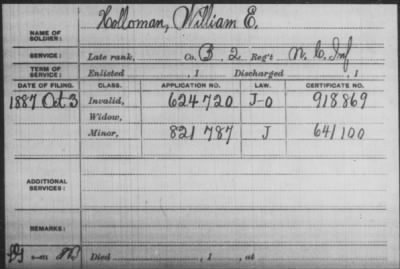 NAME OF SOLDIER: Holloman, William E.
SERVICE: Late rank, Co. B, 2 Reg't N. C. Inf
TERM OF SERVICE: Enlisted , 1 Discharged , 1
DATE OF FILING. CLASS. APPLICATION NO. LAW. CERTIFICATE NO.
1887 Oct 3 Invalid, 624720 J-O 918869
Widow,
Minor, 821787 J 641100
ADDITIONAL SERVICES:
REMARKS:
Died , 1 , at